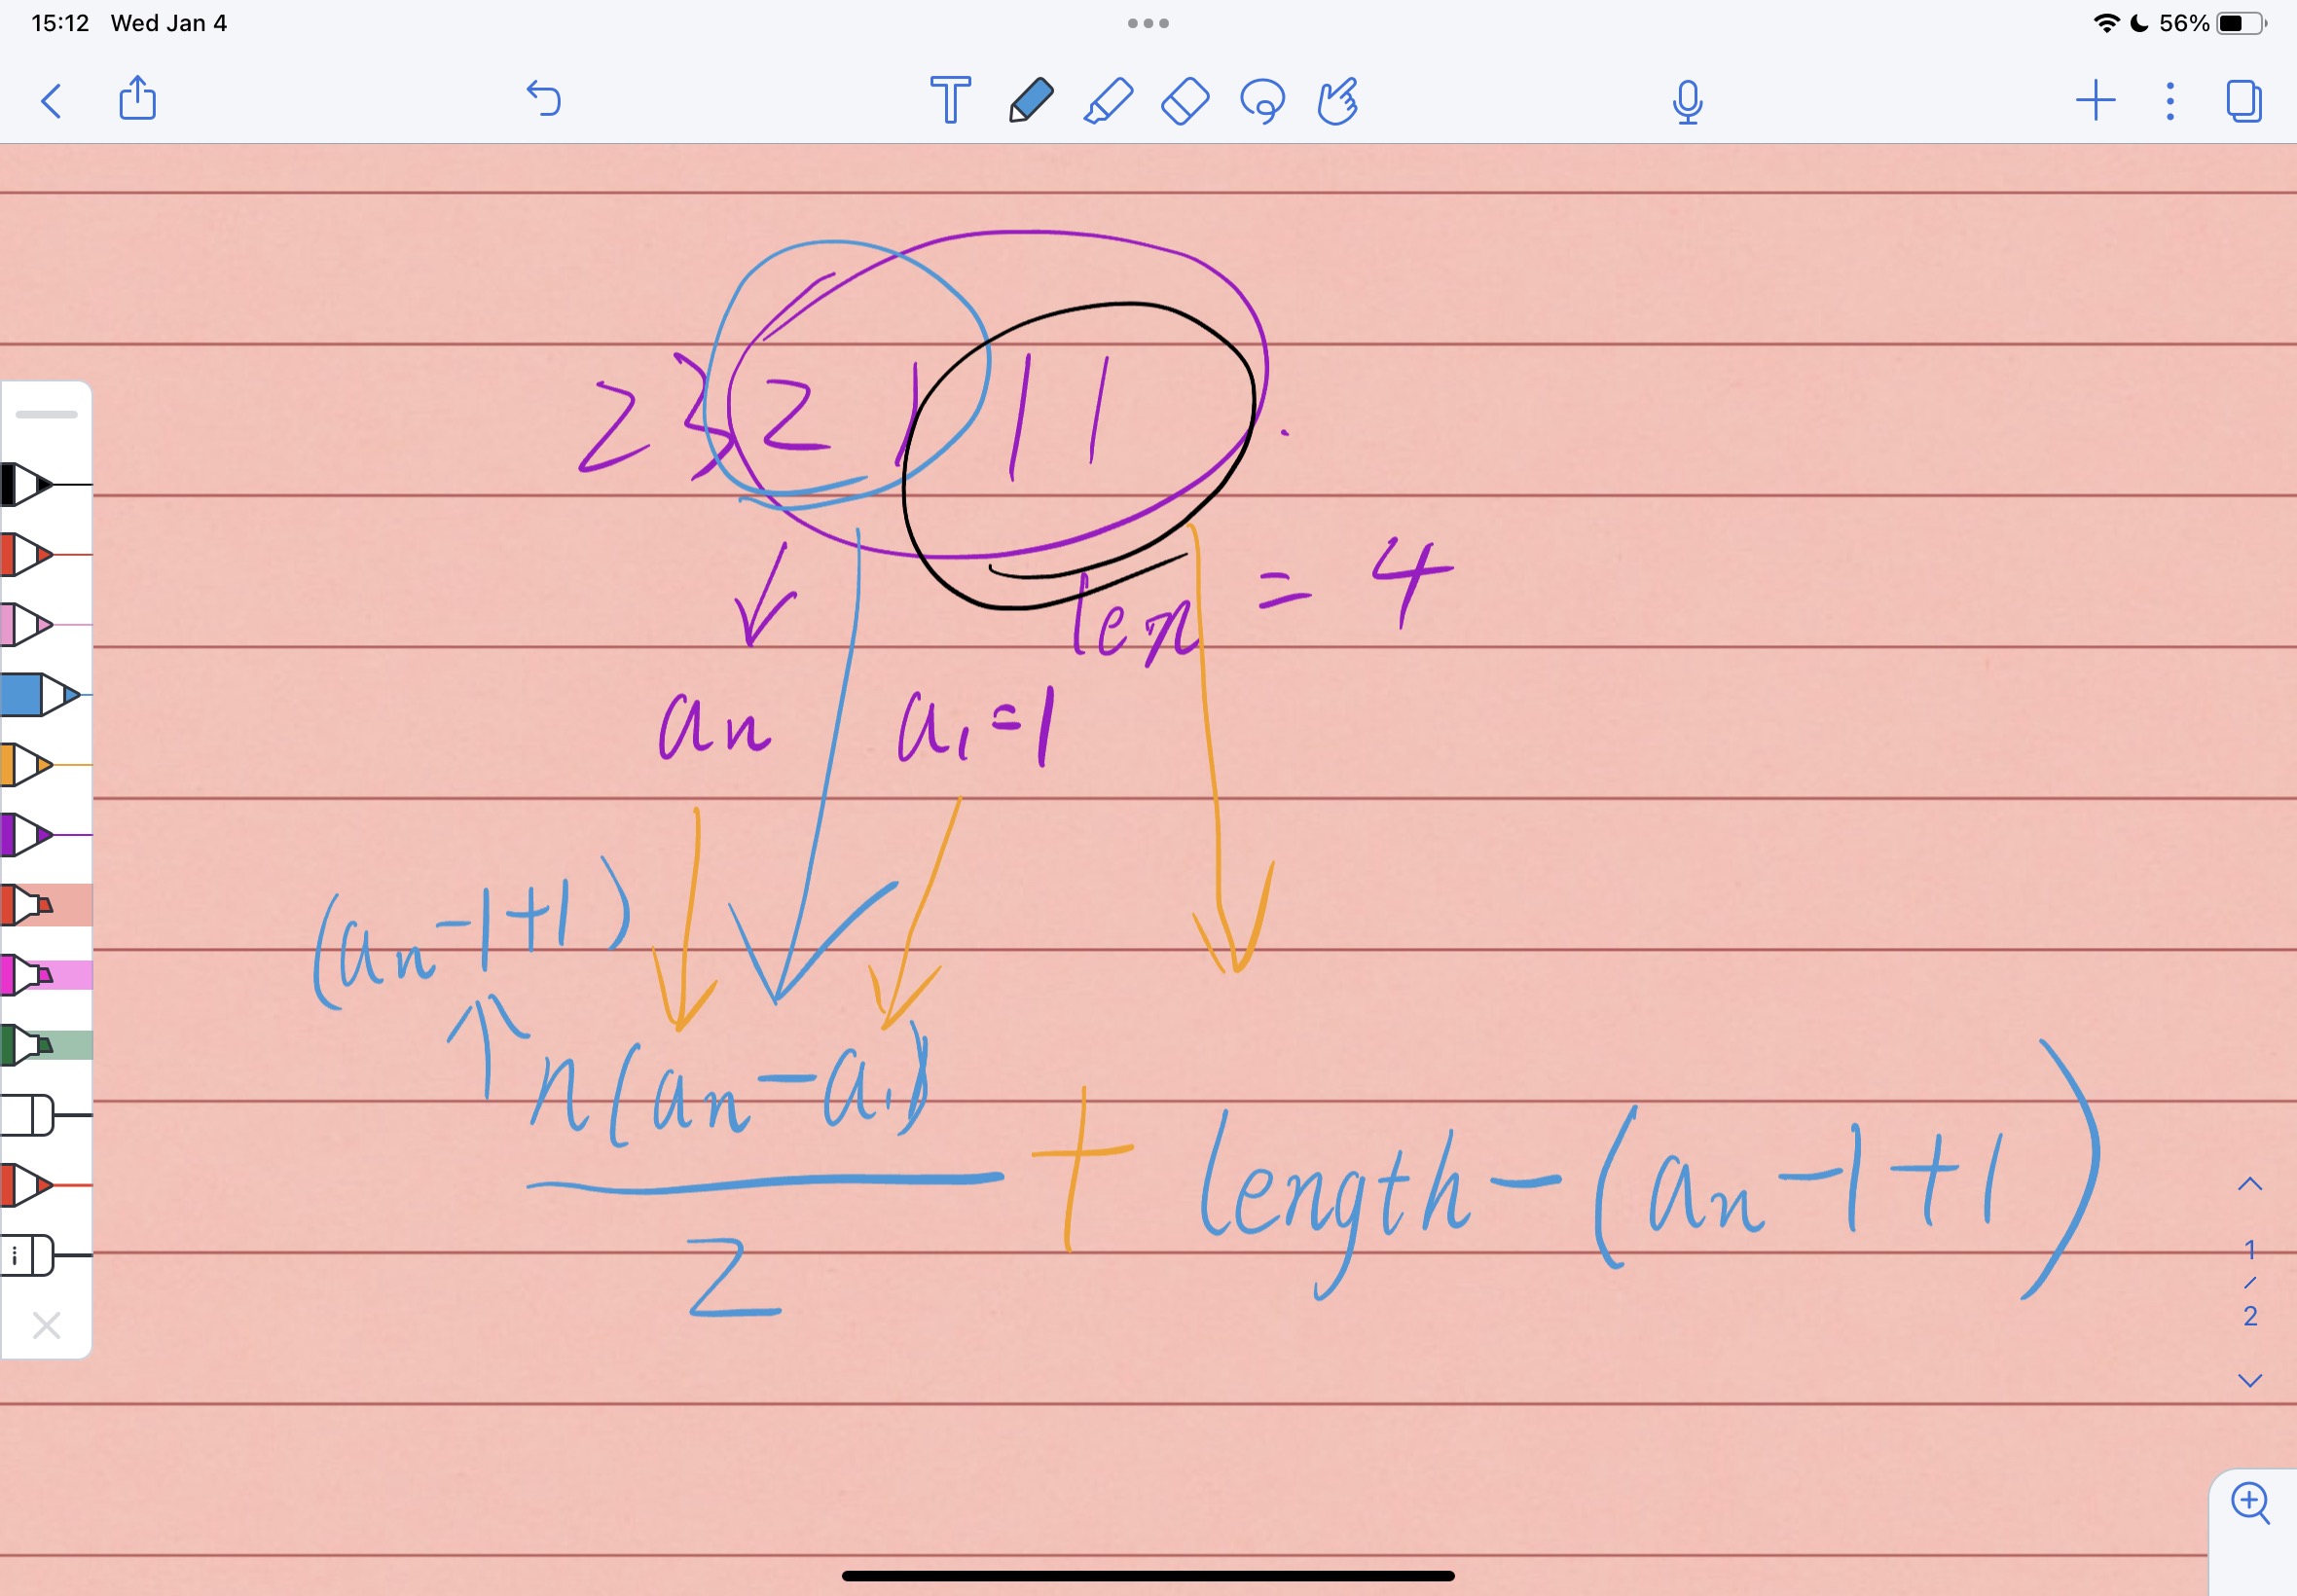 15:12 Wed Jan 4 56%
T
2 3 2 1 1 1 .
len = 4
an a1=1
(an-1+1)
n(an-a1) + length-(an-1+1)
2
1
/
2